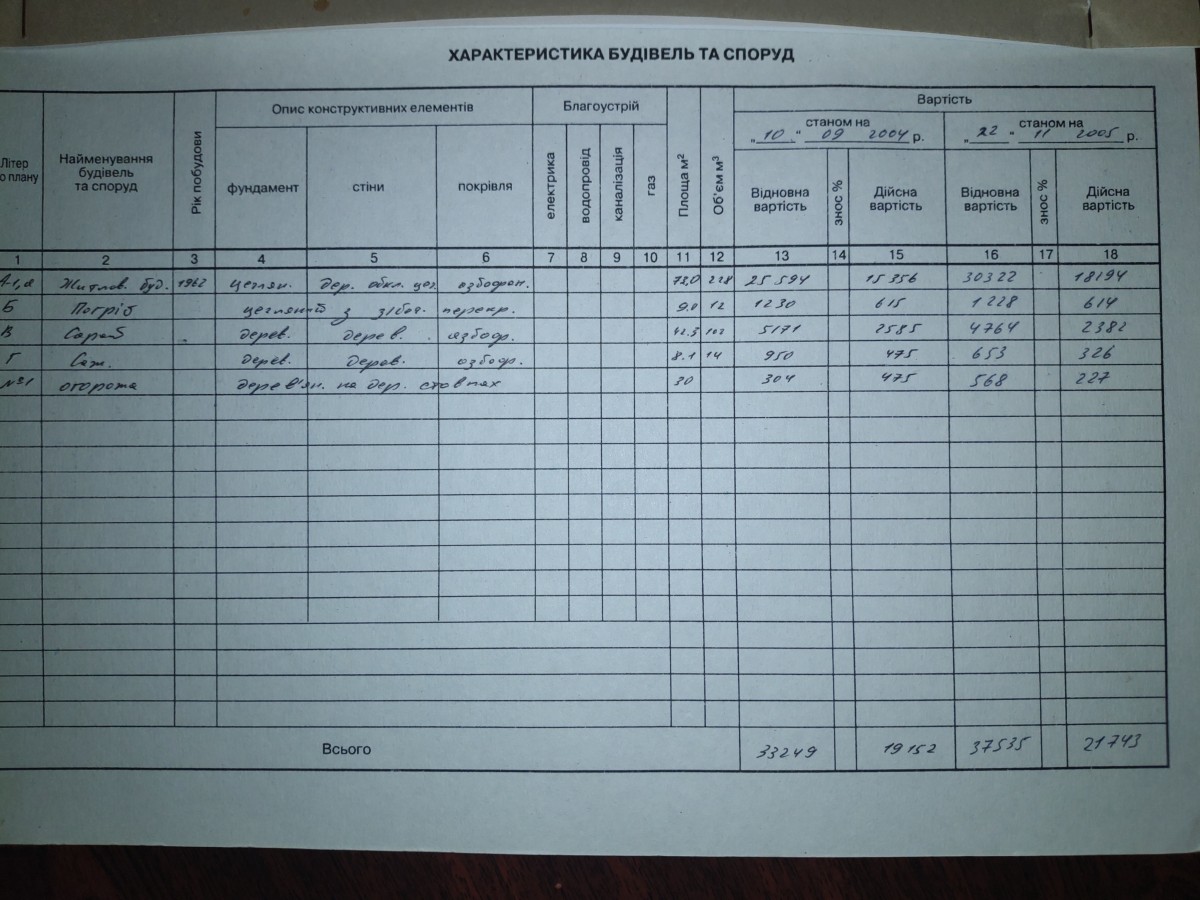 ХАРАКТЕРИСТИКА БУДІВЕЛЬ ТА СПОРУД
Літер
о плану
Найменування
будівель
та споруд
Рік побудови
Опис конструктивних елементів
фундамент
стіни
покрівля
Благоустрій
електрика
водопровід
каналізація
газ
Площа м²
Об'єм м³
Вартість
станом на
„ 10 “ 09 2004 р.
станом на
„ 22 “ 11 2005 р.
Відновна
вартість
знос %
Дійсна
вартість
Відновна
вартість
знос %
Дійсна
вартість
1 2 3 4 5 6 7 8 9 10 11 12 13 14 15 16 17 18
Житлов. буд. 1962 цеглян. дер. обкл. цег. 228 25 594 15 356 30322 18194
Б Погріб цегляний з перекр. 9.0 12 1230 615 1228 614
В Сарай дерев. дерев. азбоф. 5171 2585 4764 2382
Г Саж. дерев. дерев. азбоф. 8.1 14 950 475 653 326
№1 огорожа дерев'ян. на дер. стовпах 30 304 475 568 227
Всього 33249 19152 37535 21743